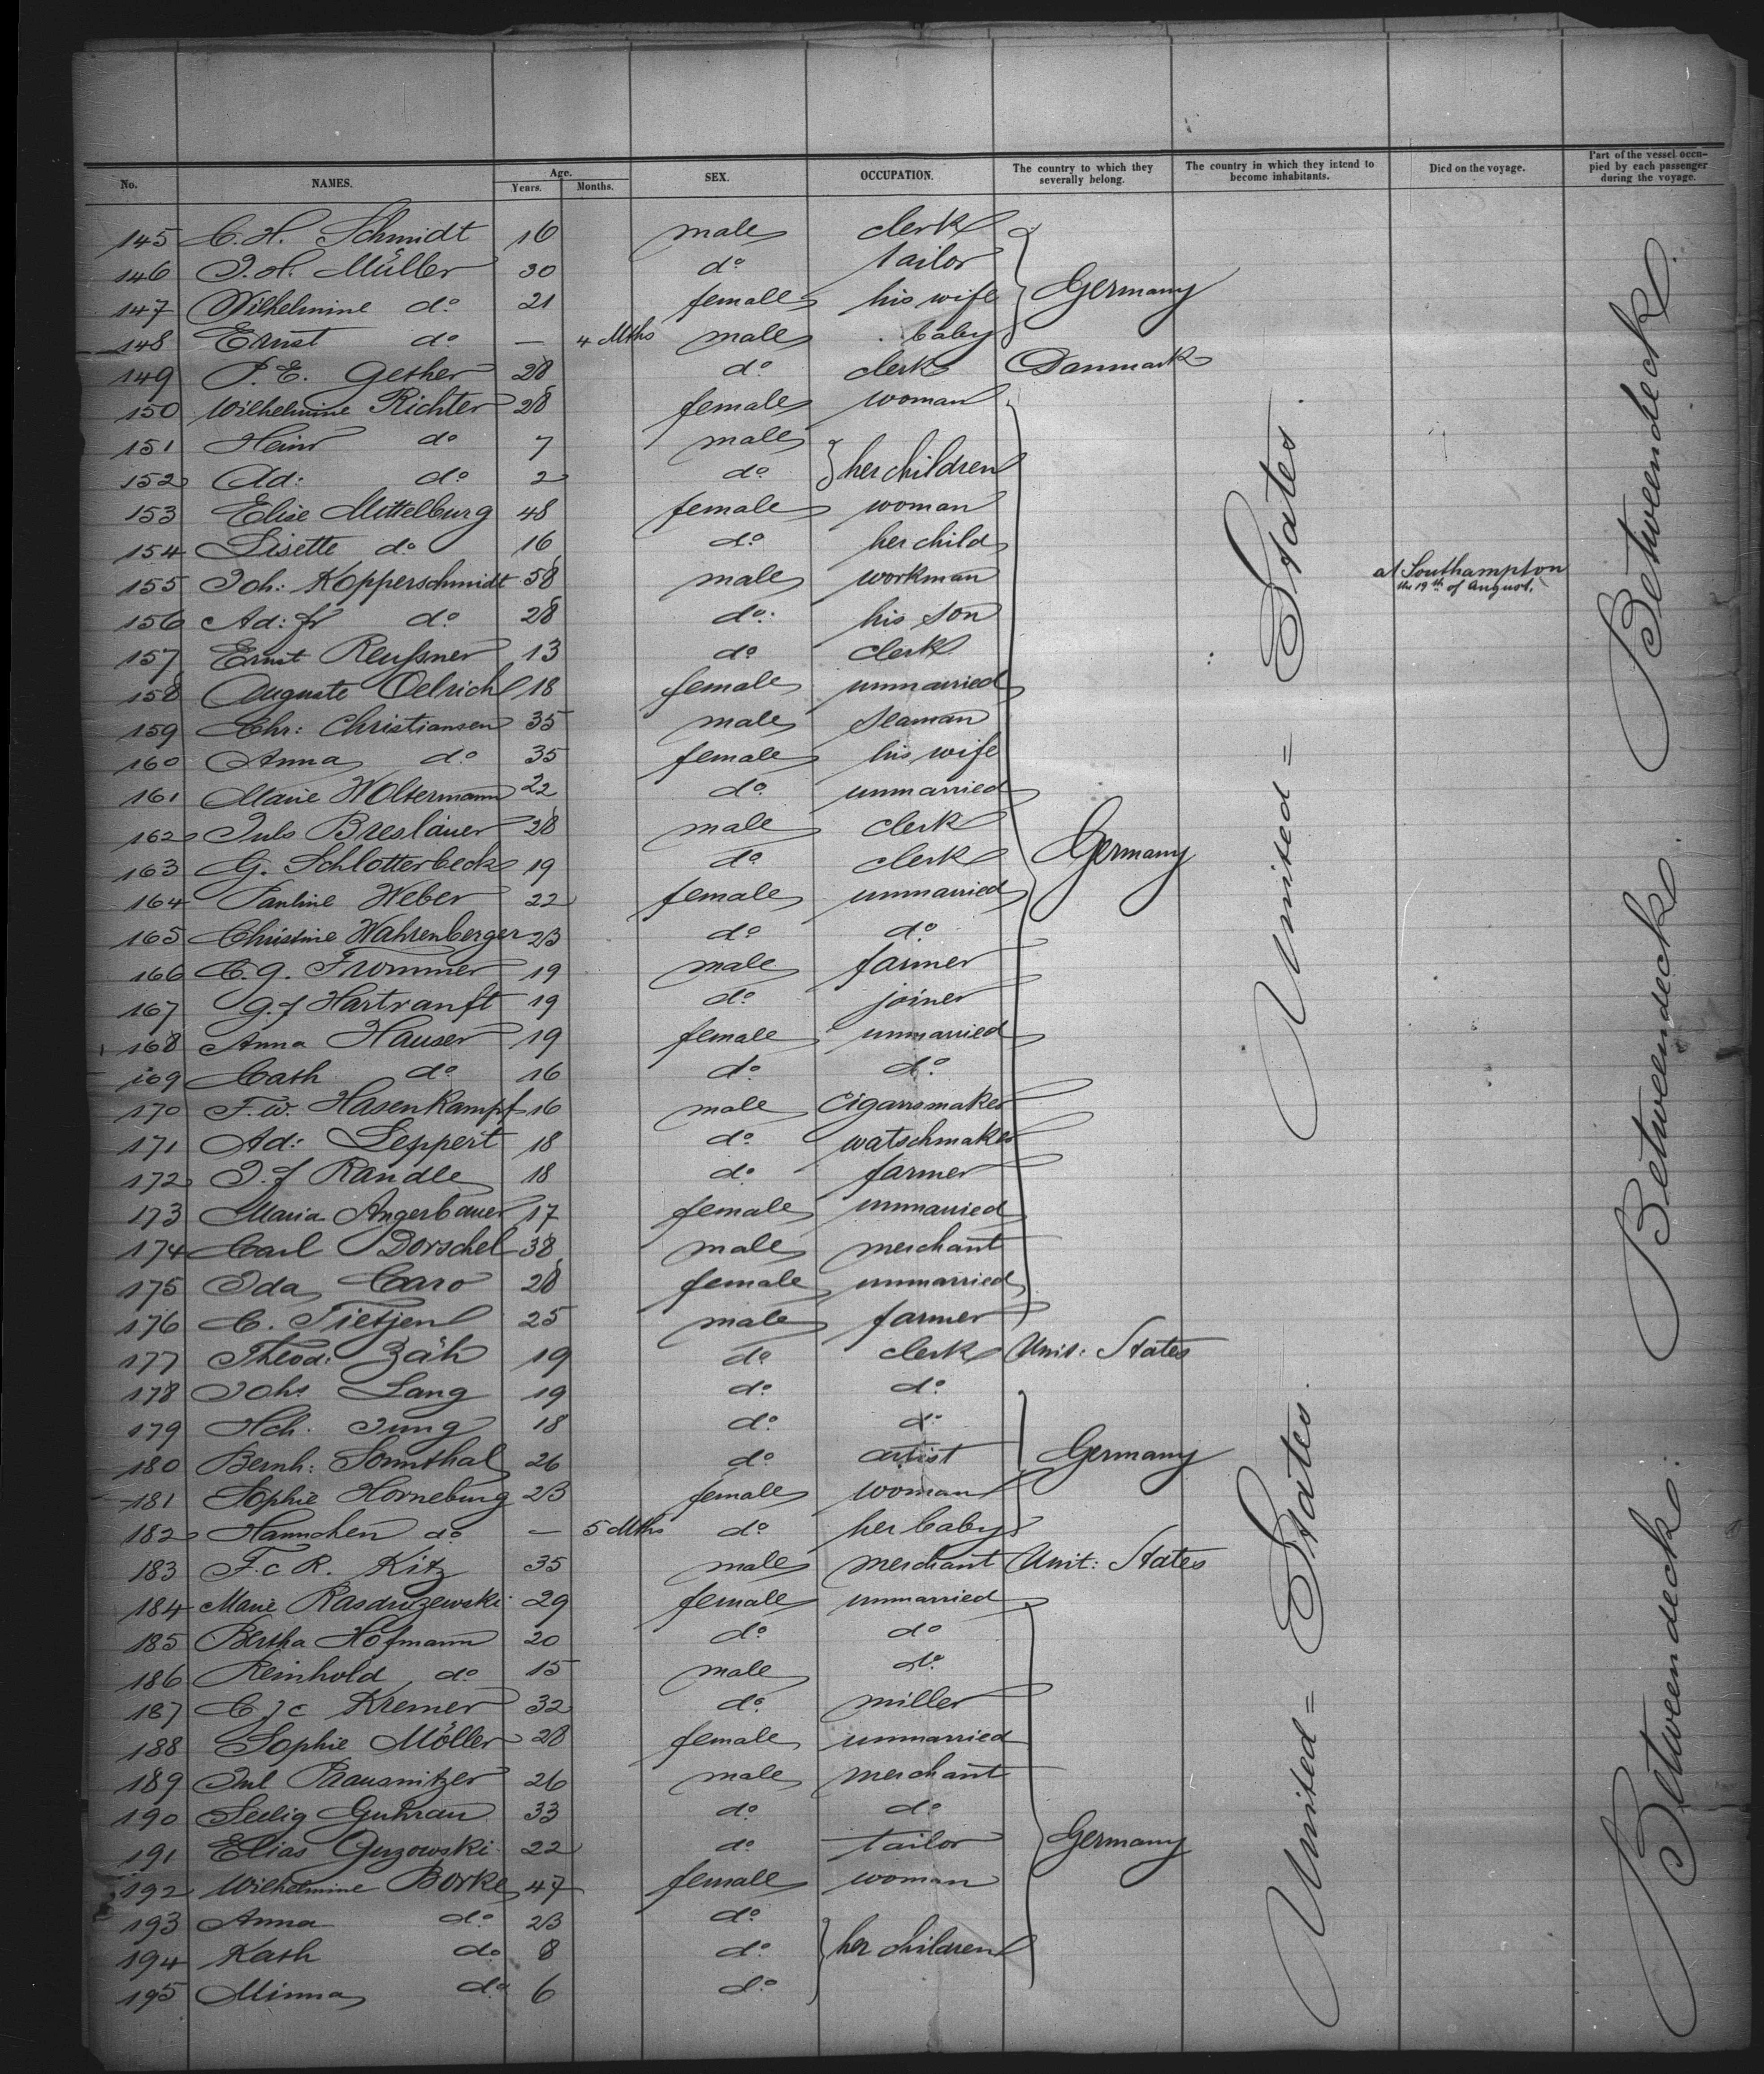 No. NAMES. Age. Years. Months. SEX. OCCUPATION. The country to which they severally belong. The country in which they intend to become inhabitants. Died on the voyage. Part of the vessel occupied by each passenger during the voyage.
145 C. H. Schmidt 16 male clerk
146 J. H. Müller 30 do tailor
147 Wilhelmine do 21 female his wife Germany
148 Ernst do — 4 Mths male baby
149 P. E. Gether 28 do clerk Danmark
150 Wilhelmine Richter 28 female woman
151 Heinr do 7 male
152 Ad: do 2 do her children
153 Elise Mittelburg 48 female woman
154 Lisette do 16 do her child
155 Joh: Kopperschmidt 58 male workman at Southampton the 19th of August.
156 Ad: fr do 28 do his son
157 Ernst Reußner 13 do clerk
158 Auguste Oelrich 18 female unmarried
159 Chr: Christiansen 35 male seaman
160 Anna do 35 female his wife
161 Marie Woltermann 22 do unmarried
162 Juls Breslauer 28 male clerk
163 G. Schlotterbeck 19 do clerk Germany
164 Pauline Weber 22 female unmarried
165 Christine Wahrenberger 23 do do
166 C. G. Frommer 19 male farmer
167 G. f Hartranft 19 do joiner
168 Anna Hauser 19 female unmarried
169 Cath do 16 do do
170 F. W. Hasenkampf 16 male cigarrsmaker
171 Ad: Leppert 18 do watschmaker
172 J. f Randle 18 do farmer
173 Maria Angerbauer 17 female unmarried
174 Carl Dorschel 38 male merchant
175 Ida Caro 28 female unmarried
176 C. Tietjen 25 male farmer
177 Theod: Zäh 19 do clerk Unit: States
178 Johs Lang 19 do do
179 Hch. Jung 18 do do
180 Bernh: Sonnthal 26 do artist Germany
181 Sophie Horneburg 23 female woman
182 Hannchen do — 5 Mths do her baby
183 F. C. R. Kitz 35 male merchant Unit: States
184 Marie 29 female unmarried
185 Bertha Hofmann 20 do do
186 Reinhold do 15 male do
187 C J C Kremer 32 do miller
188 Sophie Möller 28 female unmarried
189 Jul Prausnitzer 26 male merchant
190 Seelig Guhrau 33 do do
191 Elias Guzowski 22 do tailor Germany
192 Wilhelmine Borke 47 female woman
193 Anna do 23 do
194 Kath do 8 do her children
195 Minna do 6 do
United = States.
United = States.
Betweendeck.
Betweendeck.
Betweendeck.
Betweendeck.